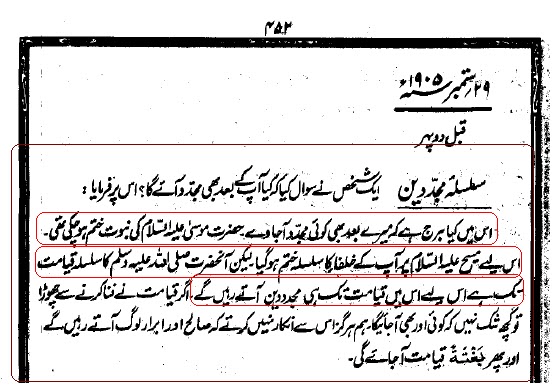 ۴۵۲
۲۹؍ستمبر ۱۹۰۵ء
قبل دوپہر
سلسلۂ مجدّدین ایک شخص نے سوال کیا کہ کیا آپ کے بعد بھی مجدّد آئے گا؟ اس پر فرمایا :
اس میں کیا ہرج ہے کہ میرے بعد بھی کوئی مجدّد آجاوے۔ حضرت موسیٰ علیہ السلام کی نبوت ختم ہو چکی تھی۔
اس لیے مسیح علیہ السلام پر آپ کے خلفاء کا سلسلہ ختم ہو گیا لیکن آنحضرت صلی اللہ علیہ وسلم کا سلسلہ قیامت
تک ہے اس لیے اس میں قیامت تک ہی مجدّدین آتے رہیں گے۔ اگر قیامت نے فنا کرنے سے چھوڑا
تو کچھ شک نہیں کہ کوئی اور بھی آجائیگا۔ ہم ہرگز اس سے انکار نہیں کرتے کہ صالح اور ابرار لوگ آتے رہیں گے
اور پھر بَغْتَةً قیامت آجائے گی۔